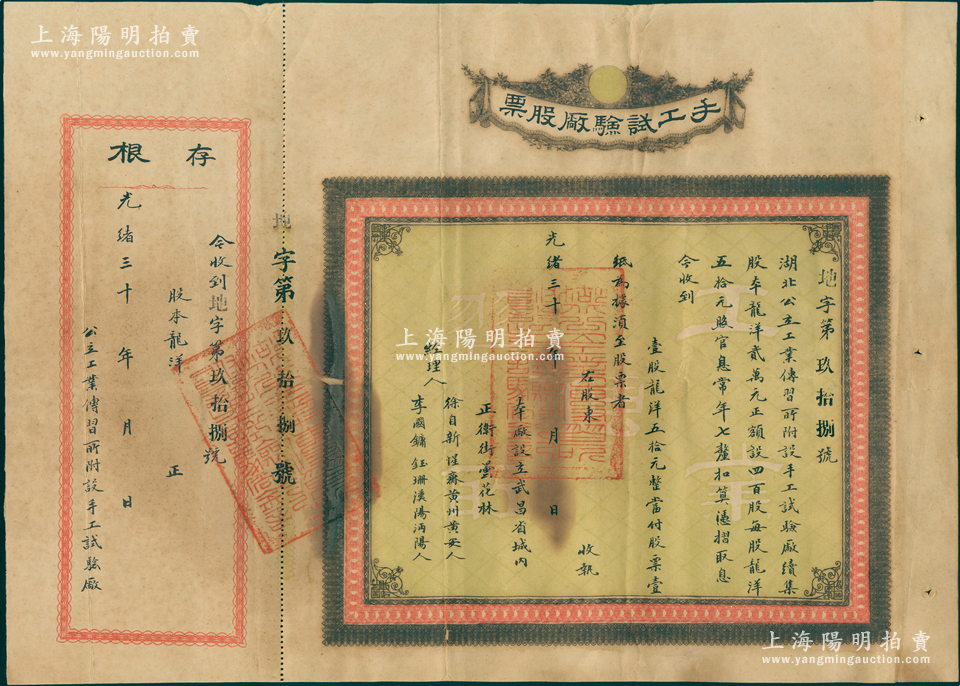 上海陽明拍賣
www.yangmingauction.com
手工試驗廠股票
地字第玖拾捌號
湖北公立工業傳習所附設手工試驗廠續集
股本龍洋貳萬元正額設四百股每股龍洋
五拾元股官息常年七釐扣算憑摺取息
今收到
壹股龍洋五拾元整當付股票壹
紙為據須至股票者
右股東
收執
光緒三十年月日
本廠設立武昌省城內
正衛街曇花林
經理人
徐自新 黃州黃安人
李國鏞 鈺珊漢陽沔陽人
上海陽明拍賣
www.yangmingauction.com
地字第玖拾捌號
存根
今收到地字第玖拾捌號
股本龍洋 正
光緒三十年月日
公立工業傳習所附設手工試驗廠
上海陽明拍賣
www.yangmingauction.com